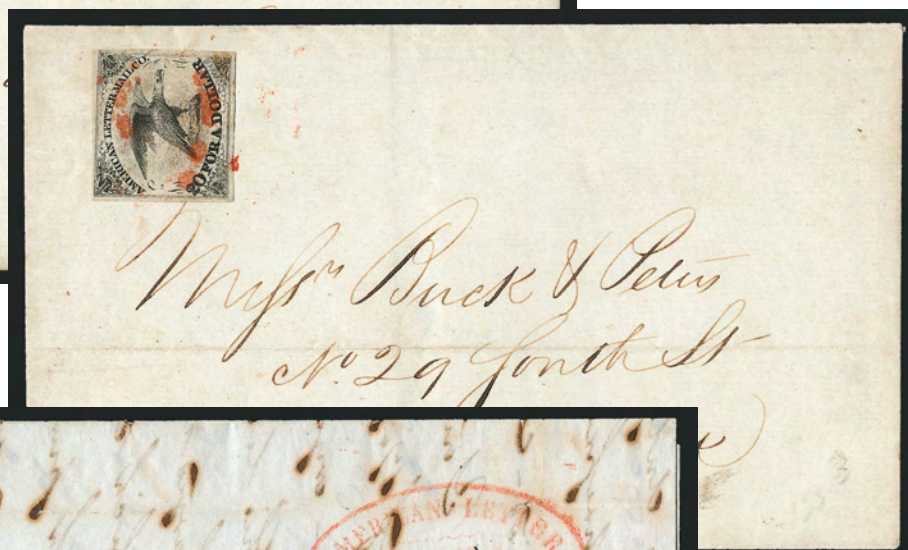 AMERICAN LETTER MAIL CO.
20 FOR A DOLLAR
Messrs Buck & Peters
No. 29 South St
AMERICAN LETTER